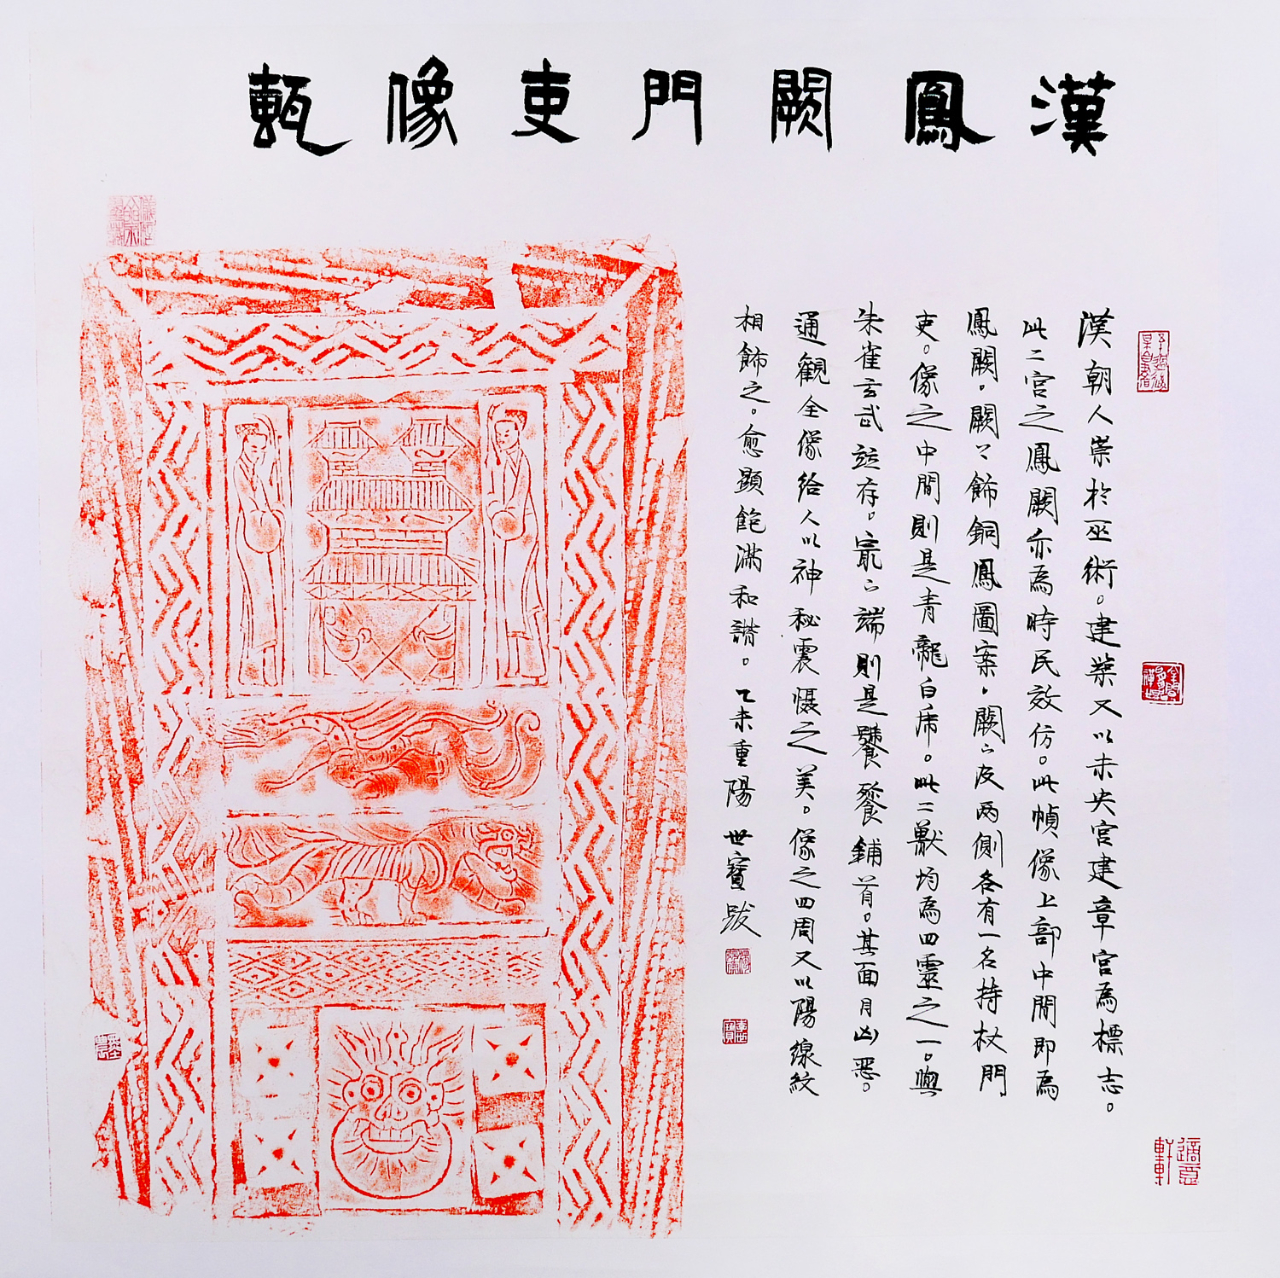 漢鳳闕門吏像甎
漢朝人崇於巫術。建築又以未央宮建章宮為標志。
此二宮之鳳闕亦為時民效仿。此幀像上部中間即為
鳳闕,闕上飾銅鳳圖案,闕下及两側各有一名持杖門
吏。像之中間則是青龍白虎。此二獸均為四靈之一。與
朱雀玄武竝存。最下端則是饕餮鋪首。其面目凶惡。
通觀全像給人以神秘震慑之美。像之四周又以陽線紋
相飾之。愈顯飽滿和諧。乙未重陽 世寶跋
適意軒